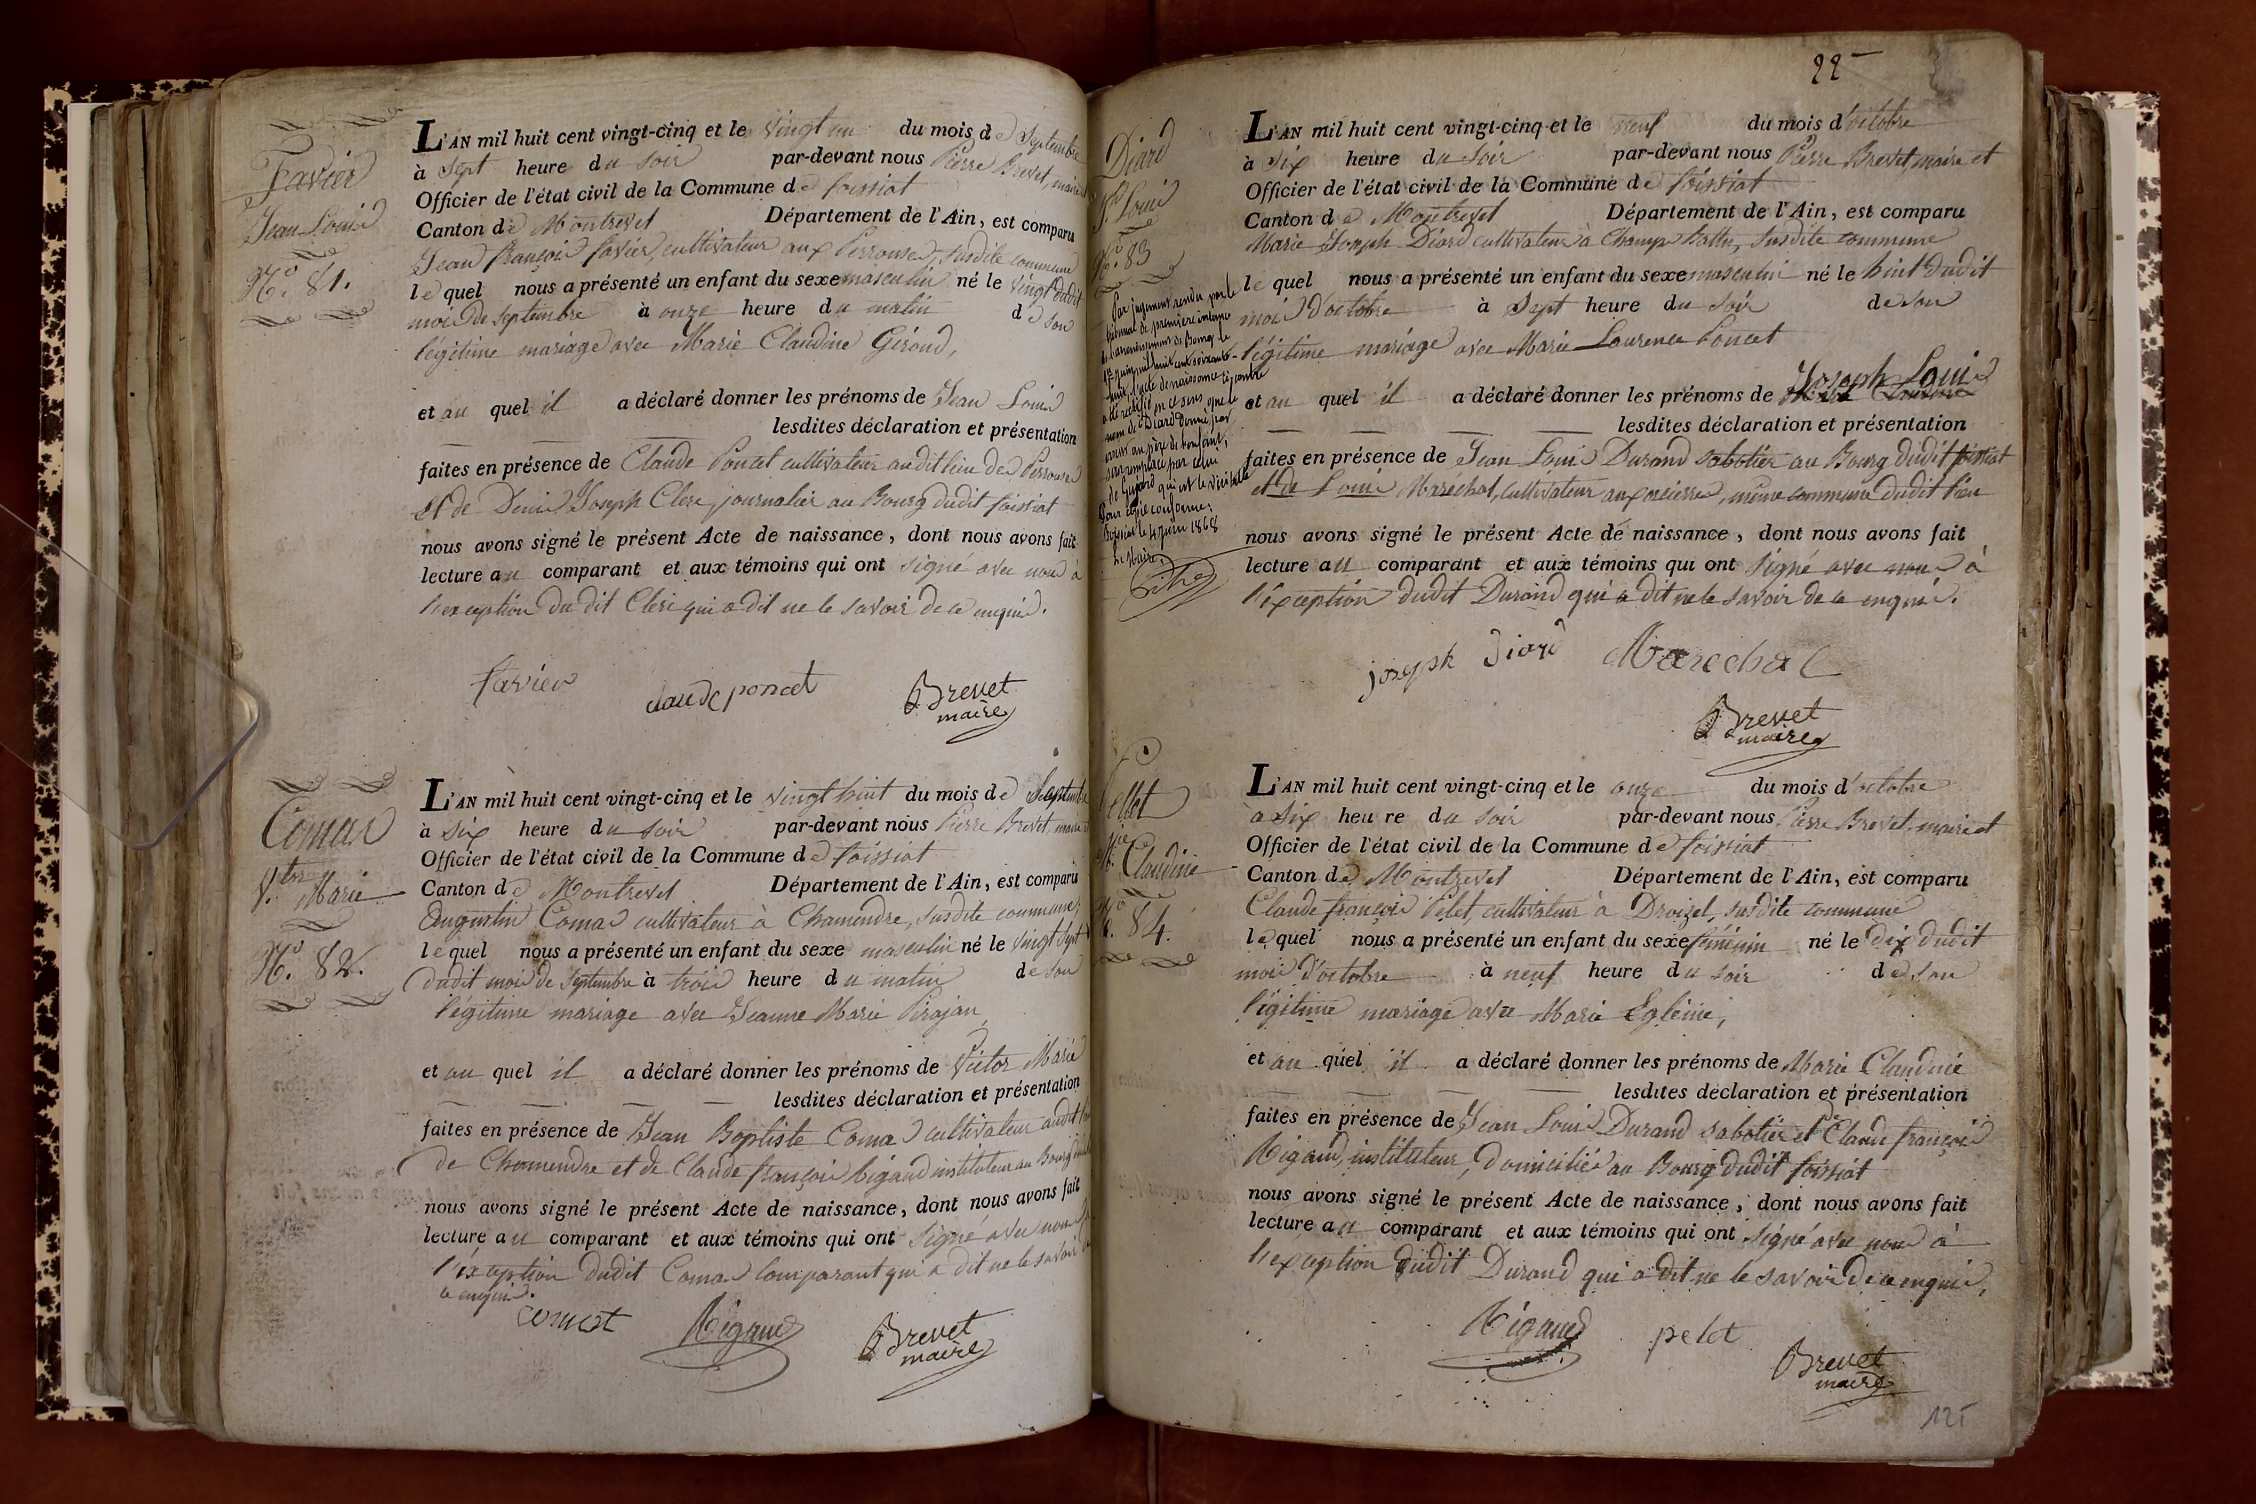 Favier
Jean Louis
N.° 81.
L'AN mil huit cent vingt-cinq et le vingt un du mois de Septembre
à Sept heure du soir par-devant nous Pierre Brevet, maire
Officier de l'état civil de la Commune de foissiat
Canton de Montrevel Département de l'Ain, est comparu
Jean françois favier, cultivateur aux Perrouses, susdite commune
lequel nous a présenté un enfant du sexe masculin né le vingt dudit
mois de Septembre à onze heure du matin de son
légitime mariage avec Marie Claudine Giroud,
et au quel il a déclaré donner les prénoms de Jean Louis
lesdites déclaration et présentation
faites en présence de Claude Poncet cultivateur audit lieu des Perrouses
et de Denis Joseph Clerc, journalier au Bourg dudit foissiat
nous avons signé le présent Acte de naissance, dont nous avons fait
lecture au comparant et aux témoins qui ont signé avec nous à
l'exception du dit Clerc qui a dit ne le savoir de ce enquis.
favier claude poncet Brevet
maire
Comas
V.tor Marie
N.° 82.
L'AN mil huit cent vingt-cinq et le vingt huit du mois de Septembre
à six heure du soir par-devant nous Pierre Brevet, maire
Officier de l'état civil de la Commune de foissiat
Canton de Montrevel Département de l'Ain, est comparu
Augustin Comas cultivateur à Chamendre, susdite commune,
lequel nous a présenté un enfant du sexe masculin né le vingt sept
dudit mois de Septembre à trois heure du matin de son
légitime mariage avec Jeanne Marie Pirajan
et au quel il a déclaré donner les prénoms de Victor Marie
lesdites déclaration et présentation
faites en présence de Jean Baptiste Comas cultivateur audit
de Chamendre et de Claude françois Rigaud instituteur au Bourg
nous avons signé le présent Acte de naissance, dont nous avons fait
lecture au comparant et aux témoins qui ont signé avec nous
l'exception dudit Comas comparant qui a dit ne le savoir
ce enquis.
comat Rigaud Brevet
maire
22
Diard
J.ph Louis
N.° 83
Par jugement rendu par le
tribunal de première instance
de l'arrondissement de Bourg le
mil huit cent soixante-
huit, l'acte de naissance ci contre
a été rectifié en ce sens que le
nom de Diard donné par
erreur au père de l'enfant,
sera remplacé par celui
de Guyard qui est le véritable
Pour copie conforme,
foissiat le 4 juin 1868
Le Maire
L'AN mil huit cent vingt-cinq et le neuf du mois d'octobre
à six heure du soir par-devant nous Pierre Brevet, maire et
Officier de l'état civil de la Commune de foissiat
Canton de Montrevel Département de l'Ain, est comparu
Marie Joseph Diard cultivateur à Champ battu, susdite commune
lequel nous a présenté un enfant du sexe masculin né le huit dudit
mois d'octobre à sept heure du soir de son
légitime mariage avec Marie Laurence Poncet
Joseph Louis
et au quel il a déclaré donner les prénoms de
lesdites déclaration et présentation
faites en présence de Jean Louis Durand sabotier au Bourg dudit foissiat
et de Louis Maréchal, cultivateur aux même commune dudit lieu
nous avons signé le présent Acte de naissance, dont nous avons fait
lecture au comparant et aux témoins qui ont signé avec nous à
l'exception dudit Durand qui a dit ne le savoir de ce enquis.
joseph diard Marechal
Brevet
maire
Pellet
M.ie Claudine
N.° 84.
L'AN mil huit cent vingt-cinq et le onze du mois d'octobre
à six heure du soir par-devant nous Pierre Brevet, maire et
Officier de l'état civil de la Commune de foissiat
Canton de Montrevel Département de l'Ain, est comparu
Claude françois Pelet, cultivateur à Droizel, susdite commune
lequel nous a présenté un enfant du sexe féminin né le dix dudit
mois d'octobre à neuf heure du soir de son
légitime mariage avec Marie Eglénie,
et au quel il a déclaré donner les prénoms de Marie Claudine
lesdites déclaration et présentation
faites en présence de Jean Louis Durand sabotier et Claude françois
Rigaud, instituteur, domiciliés au Bourg dudit foissiat
nous avons signé le présent Acte de naissance, dont nous avons fait
lecture au comparant et aux témoins qui ont signé avec nous à
l'exception dudit Durand qui a dit ne le savoir de ce enquis,
Rigaud pelet Brevet
maire
125